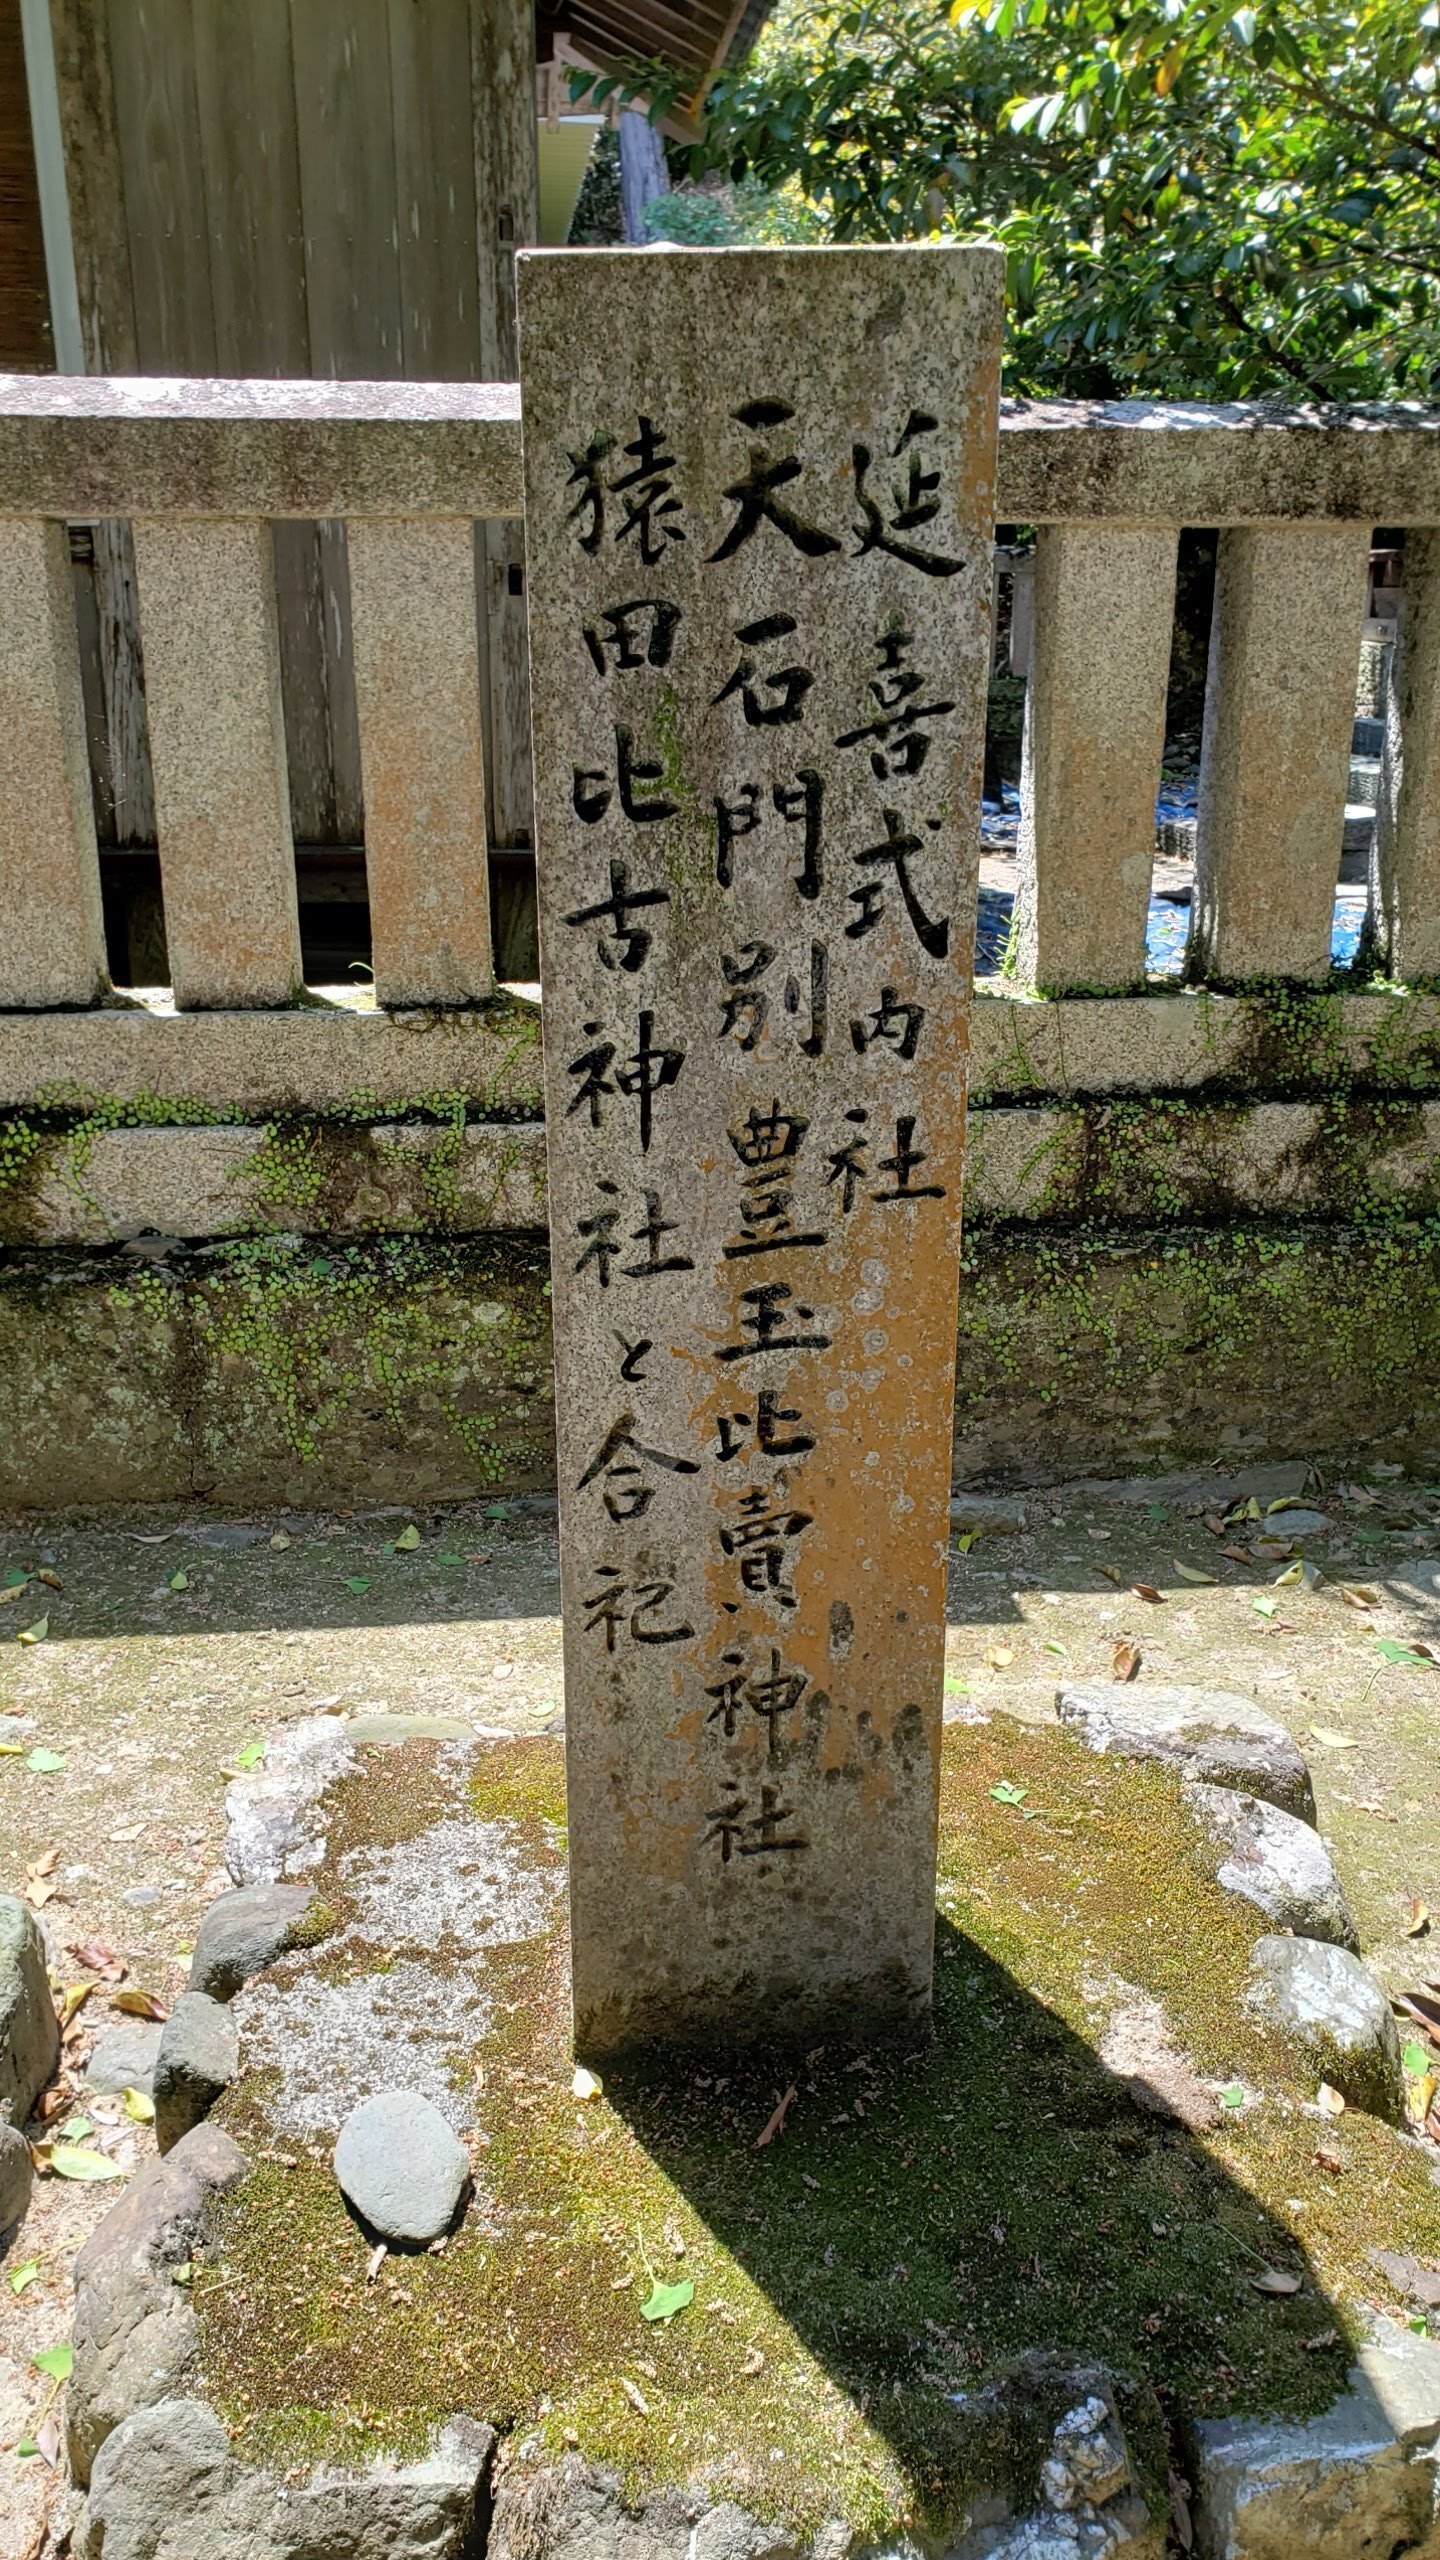 延喜式内社
天石門別豊玉比賣神社
猿田比古神社と合祀